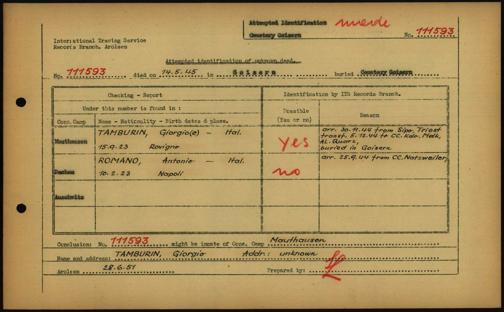 Attempted Identification
Cemetery Goisern
No. 111593
International Tracing Service
Records Branch, Arolsen
Attempted identification of unknown dead.
No. 111593 died on 14.5.45 in Goisern buried Cemetery Goisern
Checking - Report
Identification by ITS Records Branch.
Under this number is found in :
Possible
(Yes or no)
Reason
Conc.Camp
Name - Nationality - Birth date & place.
Mauthausen
TAMBURIN, Giorgio(e) - Ital.
15.9.23 Rovigno
yes
arr. 30.11.44 from Sipo Triest
transf. 5.12.44 to CC. Kdo. Melk,
AL. Quarz,
buried in Goisern
Dachau
ROMANO, Antonio - Ital.
10.2.23 Napoli
no
arr. 25.9.44 from CC. Natzweiler
Auschwitz
Conclusion: No. 111593 might be inmate of Conc. Camp Mauthausen
Name and address: TAMBURIN, Giorgio Addr.: unknown
Arolsen 28.6.51 Prepared by: